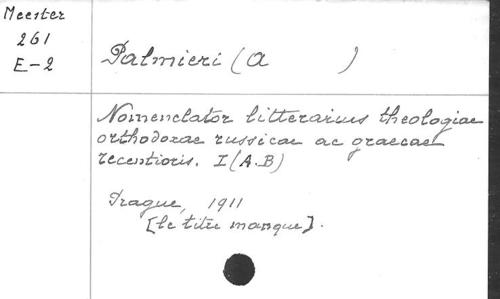 Meester
261
E-2
Palmieri (A )
Nomenclator litterarius theologiae
orthodoxae russicae ac graecae
recentioris. I (A.B)
Prague, 1911
[le titre manque].